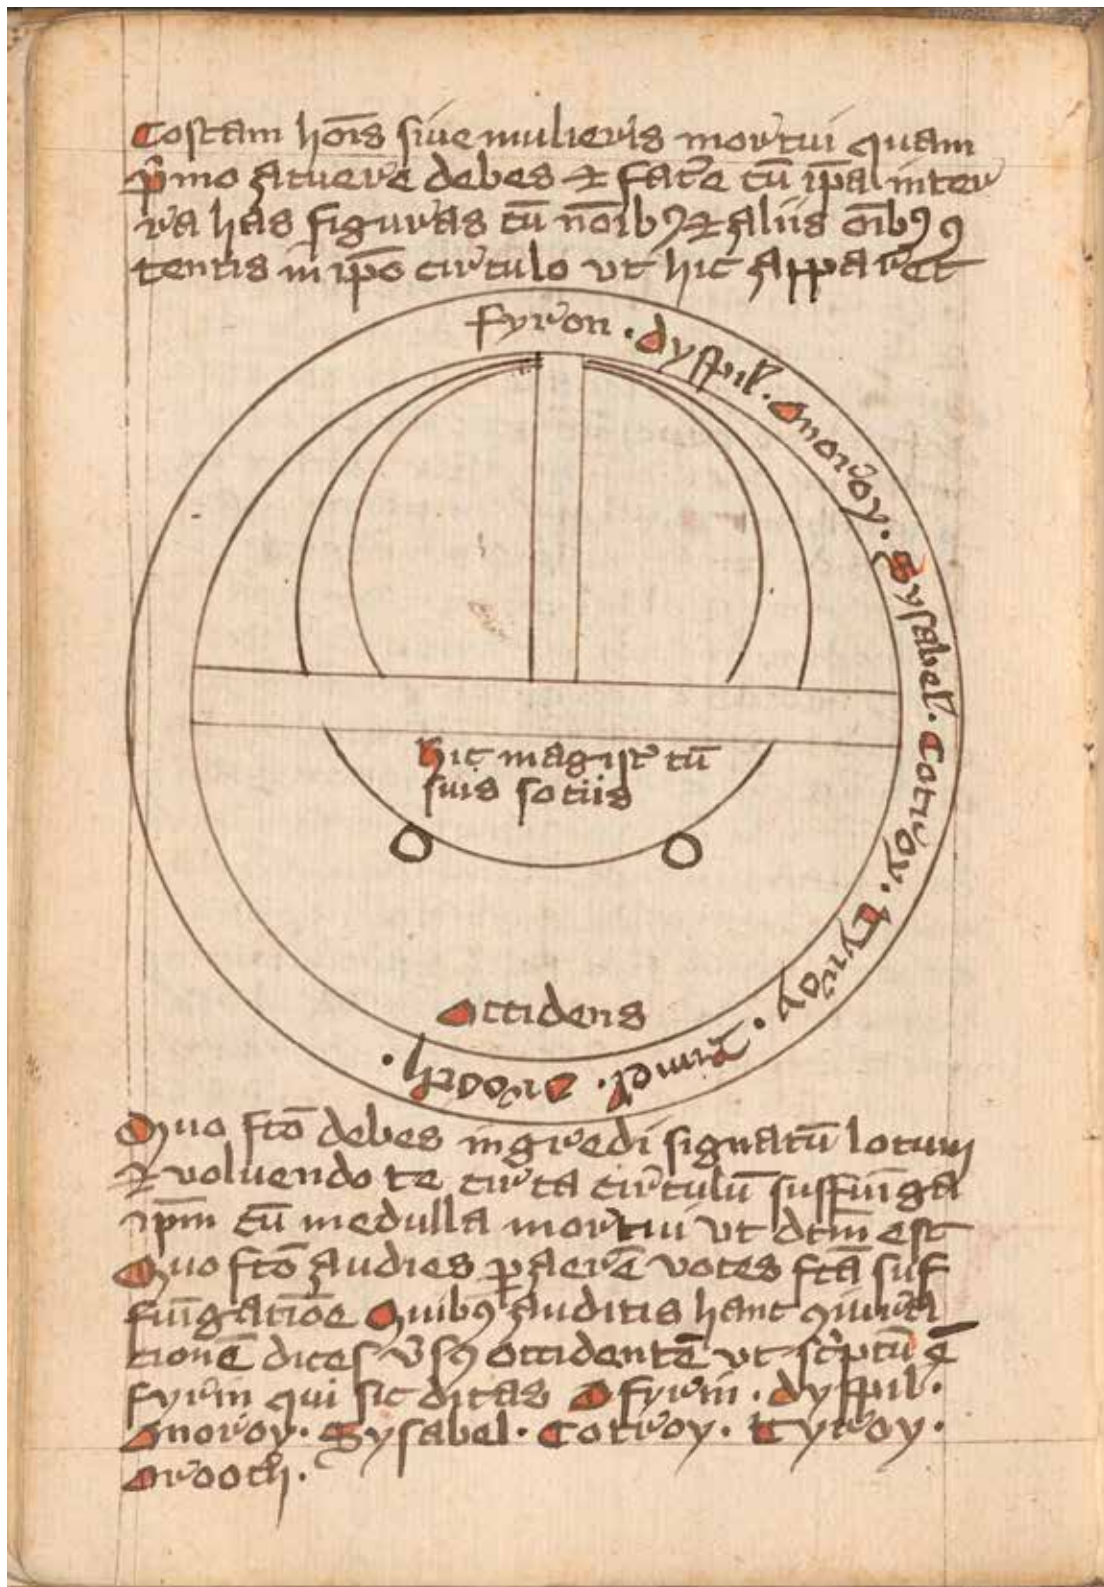 Costam hōis siue mulieris mortui quam
p̄mo acuere debes et facē cū ip̄a in ter
ra has figuras cū nōibꝯ et aliis oībꝯ ꝯ
tentis in ip̄o circulo vt hic apparet
fyron . dyspil . Onoroy . Sysabel . Cotroy . Tyroy . Rimel . Orooch .
Hic magist̄ cū
suis sociis
Occidens
Quo fc̄o debes ingredi signatū locum
et voluendo te circa circulū suffūiga
ip̄m cū medulla mortui vt dc̄m est
Quo fc̄o audies ꝑ aerē voces fc̄a suf
fūigatiōe Quibꝯ auditis hanc ꝯiura
tionē dices v̄sꝯ occidentē vt sc̄ptū ē
fyrin qui sic dicas O fyrin . dyspil .
Onoroy . Sysabel . Cotroy . Tyroy .
Orooch .